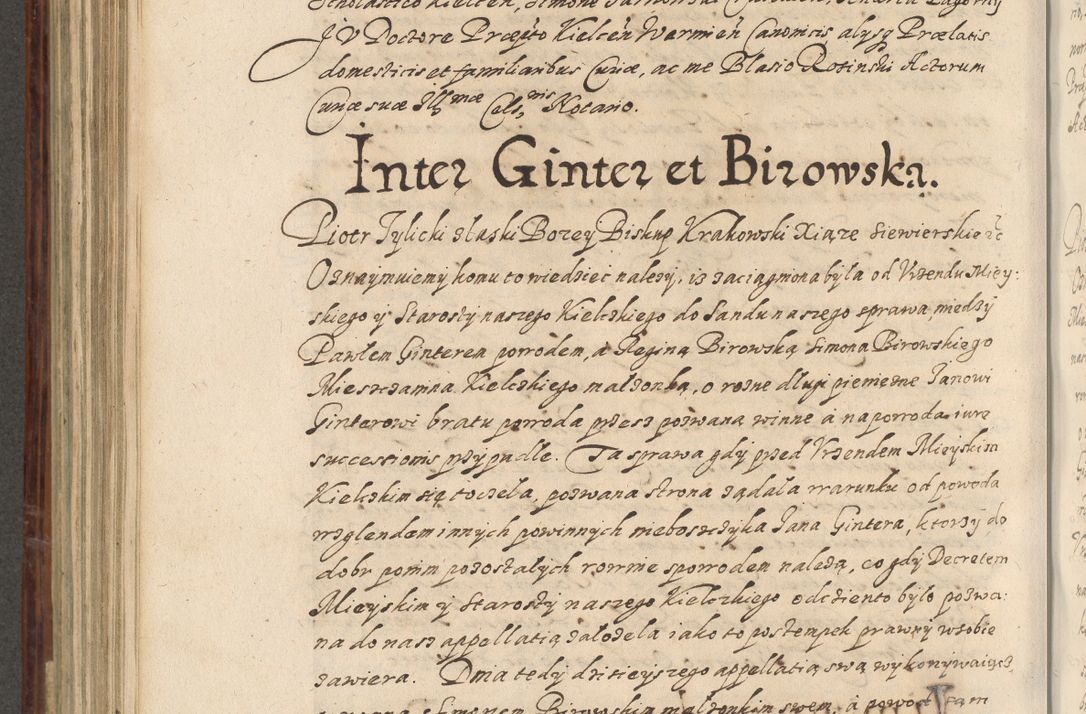 J V Doctore Præpto Kielceñ Warmieñ Canonicis alysq Prælatis
domesticis et familiaribus Curiæ, ac me Blasio Rosinski Actorum
Curiæ suæ Illmæ Celsnis Notario.
Inter Ginter et Birowska.
Piotr Tylicki z łaski Bozey Biskup Krakowski Xiąze Siewierskie etc
Oznaymuiemy komu to wiedziec nalezy, iz zaciągniona była od Vrzendu Miey:
skiego y Starosty naszego Kielczkiego do Sandu naszego sprawa, miedzy
Pawlem Ginterem powodem, a Reginą Birowską Simona Birowskiego
Miesczanina Kielczkiego małzonką, o rozne długi pieniezne Janowi
Ginterowi bratu powoda przez pozwaną winne a na powoda iure
successionis przypadłe. Ta sprawa gdy przed Vrzendem Mieyskim
Kielczkim się toczela, pozwana strona ządała warunku od powoda
wzglendem innych powinnych nieboszczyka Jana Gintera, ktorzy do
dobr ponim pozostałych rownie spowodem nalezą, co gdy Decretem
Mieyskim y Starosty naszego Kielczkiego odcziento było pozwa:
na do nasz appellatią załozela iako to postempek prawny wsobie
zawiera. Dnia tedy dzisieyszego appellatią swą wykonywaiącz
Simonem Birowskim małzonkiem swem, a powod tam